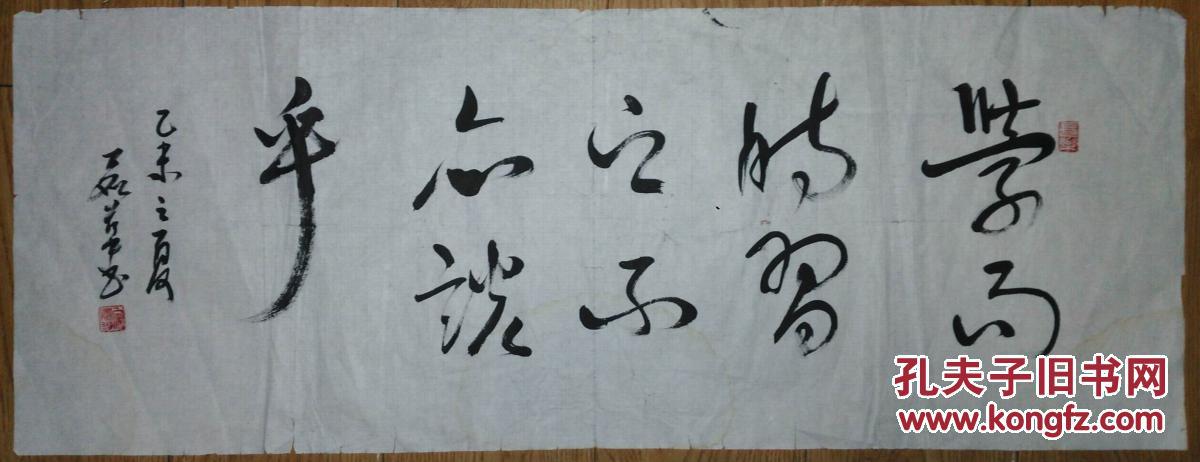 學而
時習
之不
亦説
乎
乙未之夏
孔夫子旧书网
www.kongfz.com